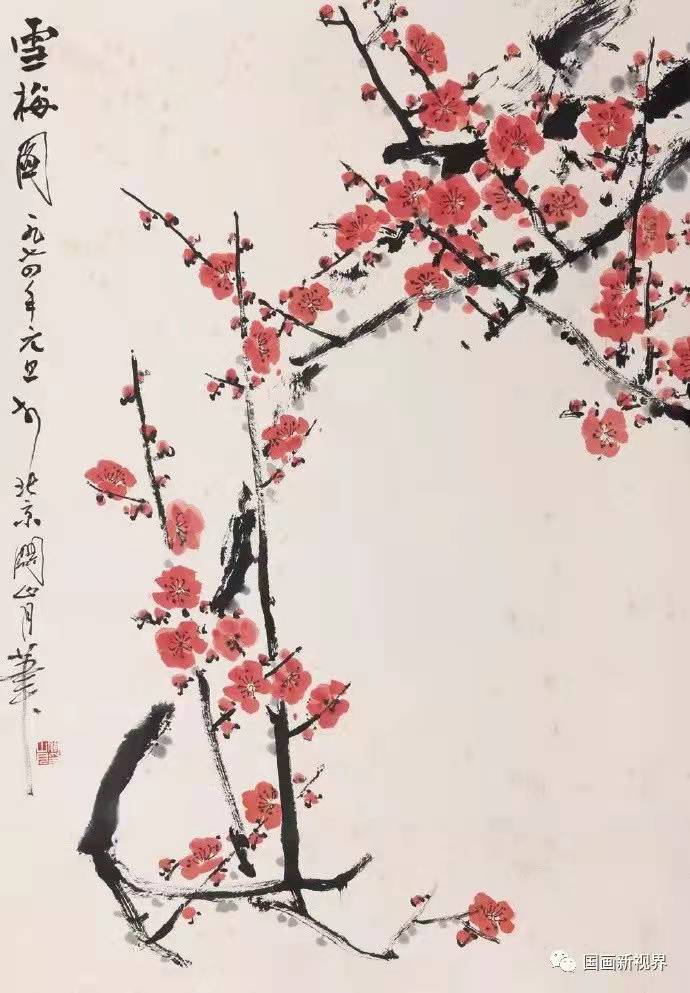 雪梅图 一九七四年元旦 于 北京 关山月笔
国画新视界